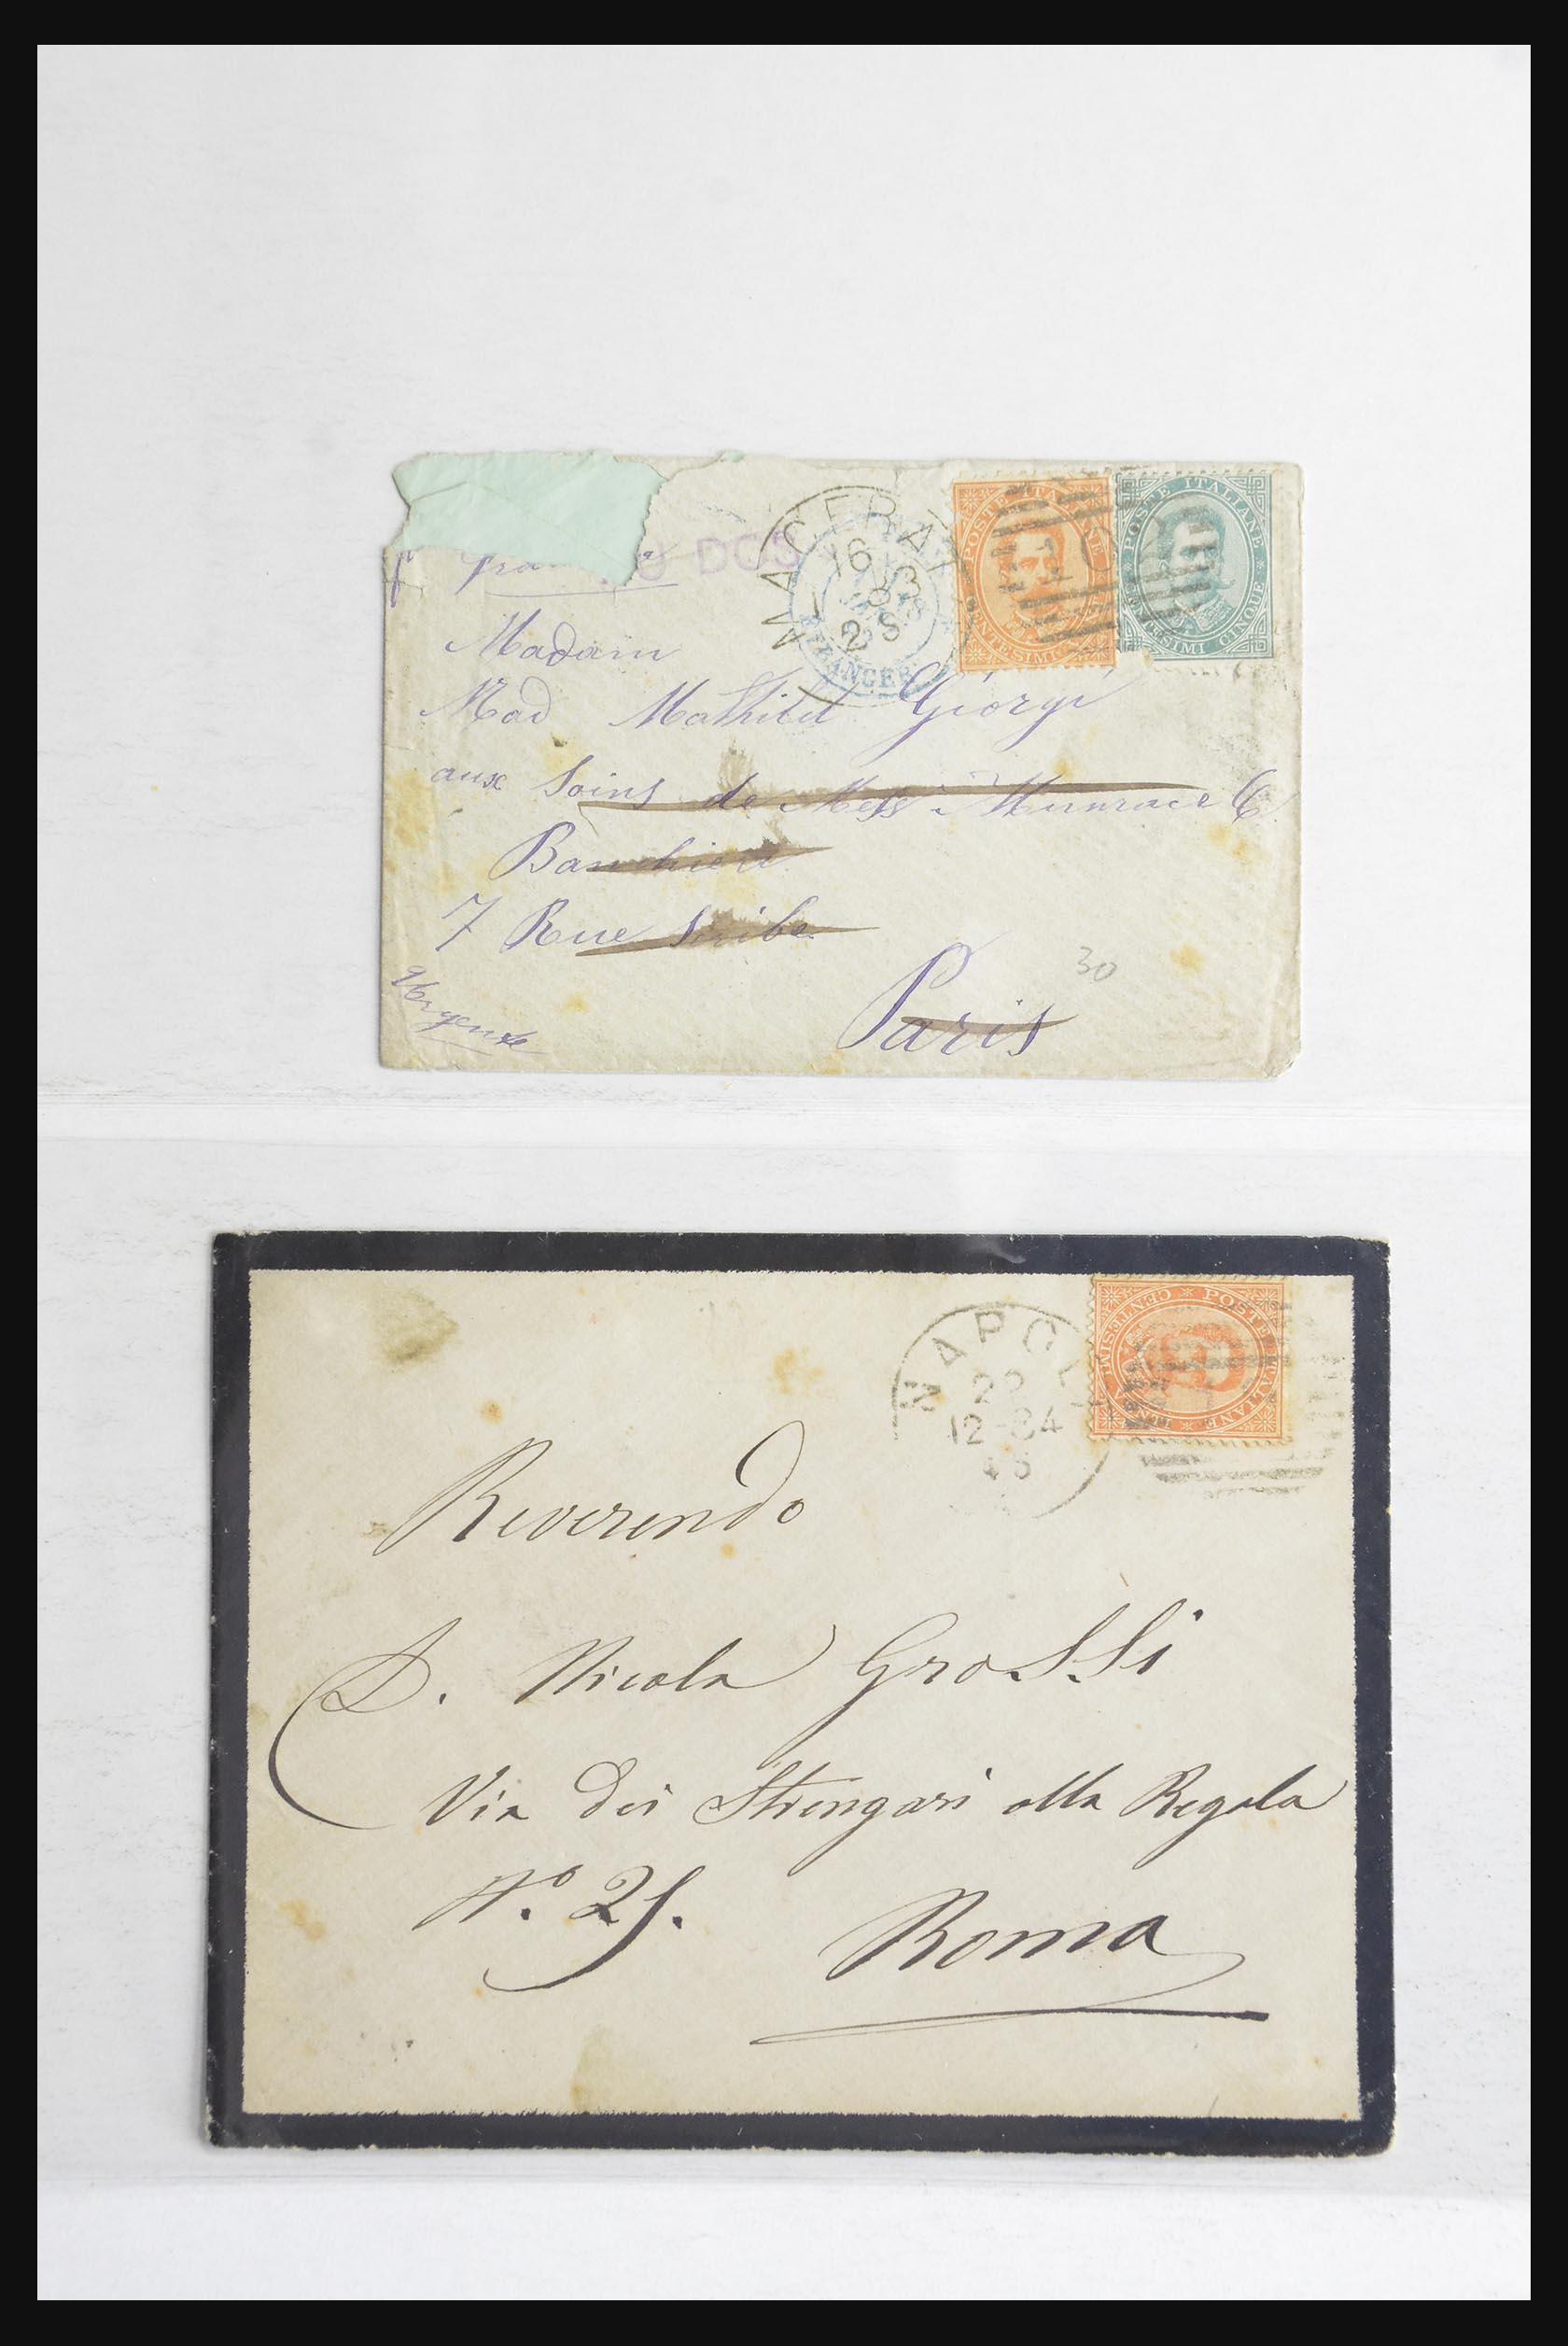 AU DOS
MACERATA
16
83
2 S
ETRANGER
POSTE ITALIANE
CENTESIMI
POSTE ITALIANE
CENTESIMI CINQUE
Madam
Mad Mathild Giorgi
aux Soins de Mess
Banchieri
7 Rue Scribe
Paris
30
Urgente
NAPOLI
12-84
POSTE ITALIANE
CENTESIMI
Reverendo
D. Nicola Grossi
Via dei Strengari alla Regola
N.º 25.
Roma